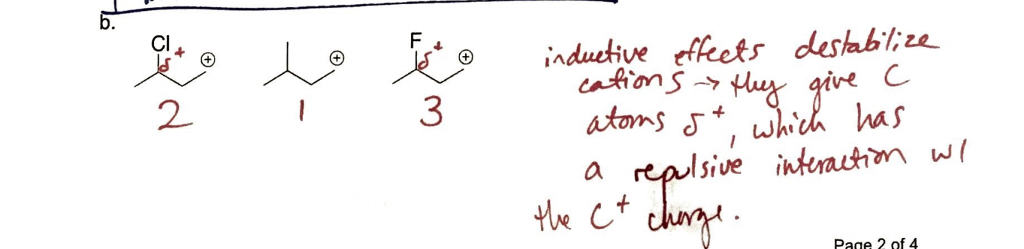 b.
Cl δ+ ⊕
⊕
F δ+ ⊕
2 1 3
inductive effects destabilize
cations → they give C
atoms δ+, which has
a repulsive interaction w/
the C+ charge.
Page 2 of 4